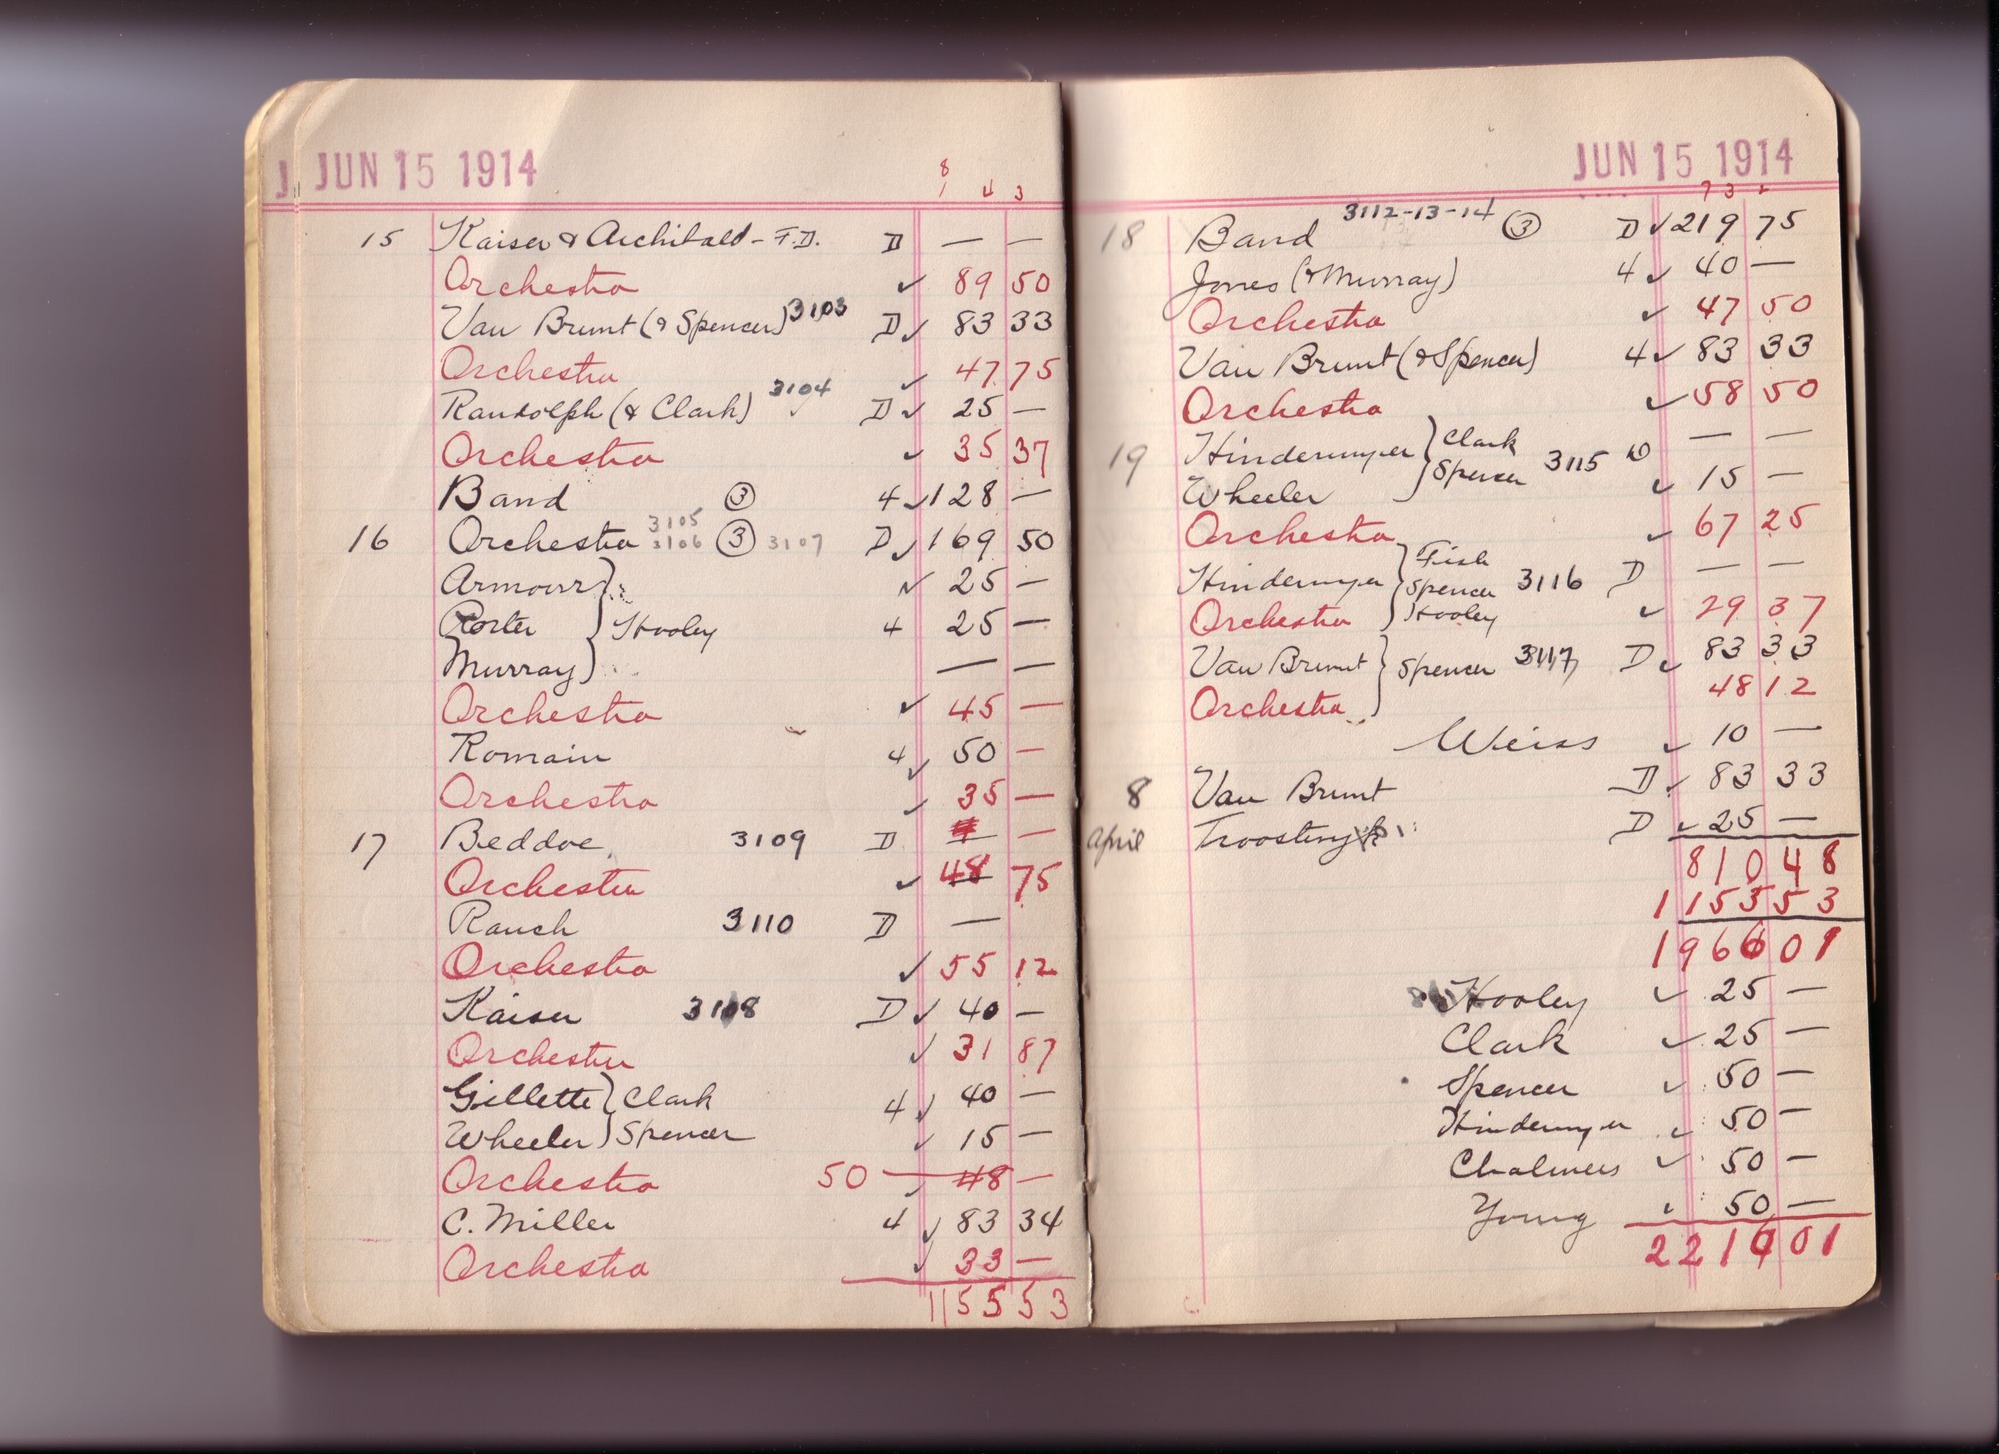 J JUN 15 1914
8
1 4 3
15 Kaiser & Archibald - F.D. D — —
Orchestra ✓ 89 50
Van Brunt (& Spencer) 3103 D ✓ 83 33
Orchestra ✓ 47 75
Randolph (& Clark) 3104 D ✓ 25 —
Orchestra ✓ 35 37
Band ③ 4 ✓ 128 —
16 Orchestra 3105 3106 ③ 3107 D ✓ 169 50
Armour } ✓ 25 —
Porter } Hooley 4 25 —
Murray } — —
Orchestra ✓ 45 —
Romain 4 ✓ 50 —
Orchestra ✓ 35 —
17 Beddoe 3109 D — —
Orchestra ✓ 48 75
Rauch 3110 D —
Orchestra ✓ 55 12
Kaiser 3108 D ✓ 40 —
Orchestra ✓ 31 87
Gillette } Clark 4 ✓ 40 —
Wheeler } Spencer ✓ 15 —
Orchestra 50 — ✓ 48 —
C. Miller 4 ✓ 83 34
Orchestra ✓ 33 —
1155 53
JUN 15 1914
7 3 2
18 Band 3112-13-14 ③ D ✓ 219 75
Jones (& Murray) 4 ✓ 40 —
Orchestra ✓ 47 50
Van Brunt (& Spencer) 4 ✓ 83 33
Orchestra ✓ 58 50
19 Hindermyer } Clark — —
Wheeler } Spencer 3115 D ✓ 15 —
Orchestra ✓ 67 25
Hindermyer } Fish Spencer 3116 D — —
Orchestra } Hooley ✓ 29 37
Van Brunt } Spencer 3117 D ✓ 83 33
Orchestra } 48 12
Weiss ✓ 10 —
8 Van Brunt D ✓ 83 33
April D ✓ 25 —
810 48
1155 53
1966 01
Hooley ✓ 25 —
Clark ✓ 25 —
Spencer ✓ 50 —
Hindermyer ✓ 50 —
Chalmers ✓ 50 —
Young ✓ 50 —
2216 01